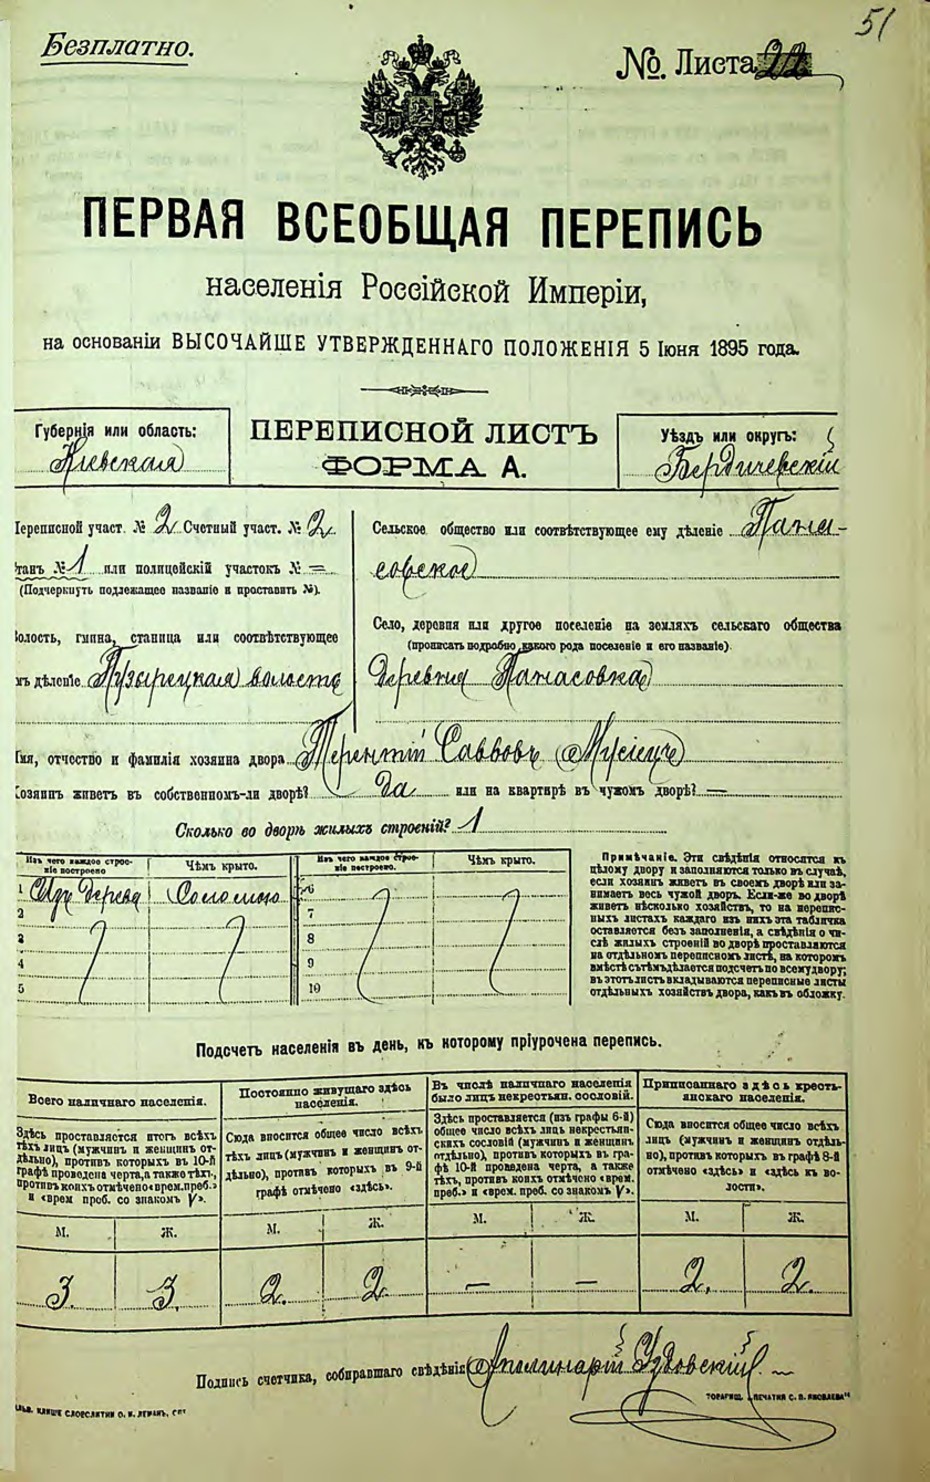 51
Безплатно.
№. Листа 22
ПЕРВАЯ ВСЕОБЩАЯ ПЕРЕПИСЬ
населенія Россійской Имперіи,
на основаніи ВЫСОЧАЙШЕ УТВЕРЖДЕННАГО ПОЛОЖЕНІЯ 5 Іюня 1895 года.
Губернія или область:
Кіевская
ПЕРЕПИСНОЙ ЛИСТЪ
ФОРМА А.
Уѣздъ или округъ:
Бердичевскій
Переписной участ. № 2 Счетный участ. № 2
Станъ № 1 или полицейскій участокъ № =
(Подчеркнуть подлежащее названіе и проставить №).
Волость, гмина, станица или соотвѣтствующее
имъ дѣленіе Пузырецкая волость
Сельское общество или соотвѣтствующее ему дѣленіе Пана-
совское
Село, деревня или другое поселеніе на земляхъ сельскаго общества
(прописать подробно какого рода поселеніе и его названіе)
Деревня Панасовка
Имя, отчество и фамилія хозяина двора Терентій Саввовъ
Хозяинъ живетъ въ собственномъ-ли дворѣ? Да или на квартирѣ въ чужомъ дворѣ? —
Сколько во дворѣ жилыхъ строеній? 1
Изъ чего каждое строе-
ніе построено
Чѣмъ крыто.
1 Изъ дерева Соломою
2
3
4
5
Изъ чего каждое строе-
ніе построено.
Чѣмъ крыто.
6
7
8
9
10
Примѣчаніе. Эти свѣдѣнія относятся къ
цѣлому двору и заполняются только въ случаѣ,
если хозяинъ живетъ въ своемъ дворѣ или за-
нимаетъ весь чужой дворъ. Если-же во дворѣ
живетъ нѣсколько хозяйствъ, то на перепис-
ныхъ листахъ каждаго изъ нихъ эта табличка
оставляется безъ заполненія, а свѣдѣнія о чи-
слѣ жилыхъ строеній во дворѣ проставляются
на отдѣльномъ переписномъ листѣ, на которомъ
вмѣстѣ съ тѣмъ дѣлается подсчетъ по всему двору;
въ этотъ листъ вкладываются переписные листы
отдѣльныхъ хозяйствъ двора, какъ въ обложку.
Подсчетъ населенія въ день, къ которому пріурочена перепись.
Всего наличнаго населенія.
Здѣсь проставляется итогъ всѣхъ
тѣхъ лицъ (мужчинъ и женщинъ от-
дѣльно), противъ которыхъ въ 10-й
графѣ проведена черта, а также тѣхъ,
противъ коихъ отмѣчено «врем. преб.»
и «врем преб. со знакомъ V».
М. Ж.
3. 3.
Постоянно живущаго здѣсь
населенія.
Сюда вносится общее число всѣхъ
тѣхъ лицъ (мужчинъ и женщинъ от-
дѣльно), противъ которыхъ въ 9-й
графѣ отмѣчено «здѣсь».
М. Ж.
2. 2.
Въ числѣ наличнаго населенія
было лицъ некрестьян. сословій.
Здѣсь проставляется (изъ графы 6-й)
общее число всѣхъ лицъ некрестьян-
скихъ сословій (мужчинъ и женщинъ
отдѣльно), противъ которыхъ въ гра-
фѣ 10-й проведена черта, а также
тѣхъ, противъ коихъ отмѣчено «врем.
преб.» и «врем. преб. со знакомъ V».
М. Ж.
— —
Приписаннаго здѣсь кресть-
янскаго населенія.
Сюда вносится общее число всѣхъ
лицъ (мужчинъ и женщинъ отдѣль-
но), противъ которыхъ въ графѣ 8-й
отмѣчено «здѣсь» и «здѣсь къ во-
лости».
М. Ж.
2. 2.
Подпись счетчика, собиравшаго свѣдѣнія Аполинарій
КЛИШЕ СЛОВОЛИТНИ О. И. ЛЕМАНЪ, СПБ
ТОВАРИЩ. „ПЕЧАТНЯ С. П. ЯКОВЛЕВА“